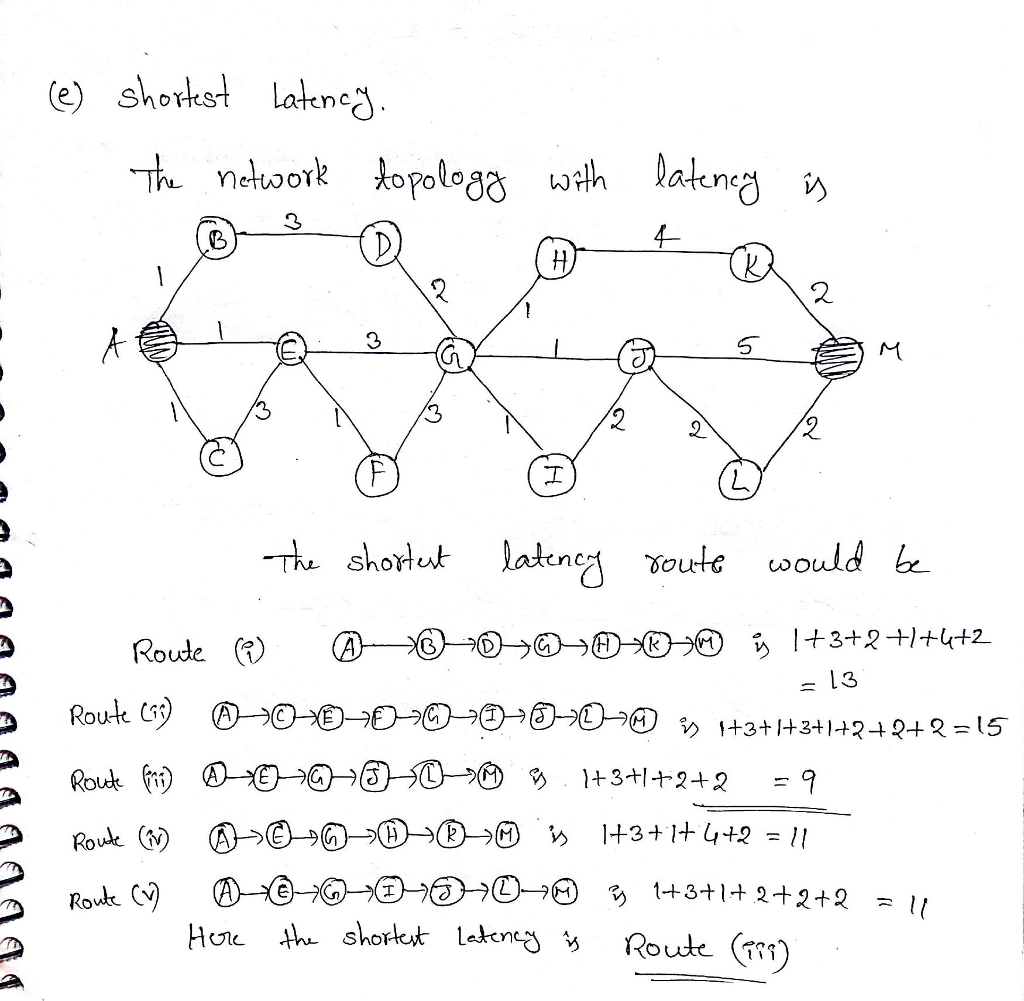 (e) shortest Latency.
The network topology with latency is
B 3 D H 4 K
1 2 1 2
A 1 E 3 G 1 J 5 M
1 3 1 3 1 2 2 2
C F I L
The shortest latency route would be
Route (i) A→B→D→G→H→K→M is 1+3+2+1+4+2
= 13
Route (ii) A→C→E→F→G→I→J→L→M is 1+3+1+3+1+2+2+2=15
Route (iii) A→E→G→J→L→M is 1+3+1+2+2 = 9
Route (iv) A→E→G→H→K→M is 1+3+1+4+2 = 11
Route (v) A→E→G→I→J→L→M is 1+3+1+2+2+2 = 11
Here the shortest Latency is Route (iii)